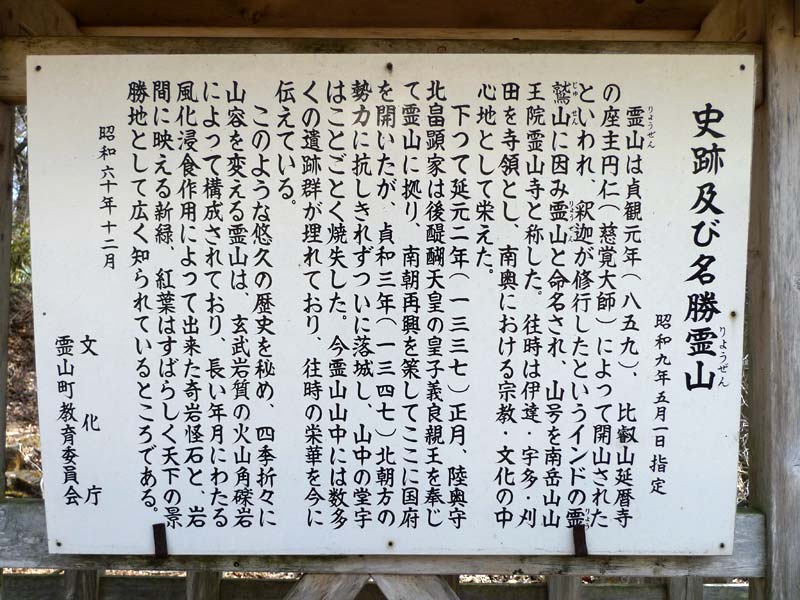 史跡及び名勝霊山
りょうぜん
昭和九年五月一日指定
霊山は貞観元年(八五九)、比叡山延暦寺
りょうぜん
の座主円仁(慈覚大師)によって開山された
といわれ、釈迦が修行したというインドの霊
鷲山に因み霊山と命名され、山号を南岳山山
りょうぜん
王院霊山寺と称した。往時は伊達・宇多・刈
田を寺領とし、南奥における宗教・文化の中
心地として栄えた。
下つて延元二年(一三三七)正月、陸奥守
北畠顕家は後醍醐天皇の皇子義良親王を奉じ
て霊山に拠り、南朝再興を策してここに国府
を開いたが、貞和三年(一三四七)北朝方の
勢力に抗しきれずついに落城し、山中の堂宇
はことごとく焼失した。今霊山山中には数多
くの遺跡群が埋れており、往時の栄華を今に
伝えている。
このような悠久の歴史を秘め、四季折々に
山容を変える霊山は、玄武岩質の火山角礫岩
によって構成されており、長い年月にわたる
風化浸食作用によって出来た奇岩怪石と、岩
間に映える新緑、紅葉はすばらしく天下の景
勝地として広く知られているところである。
昭和六十年十二月
文化庁
霊山町教育委員会